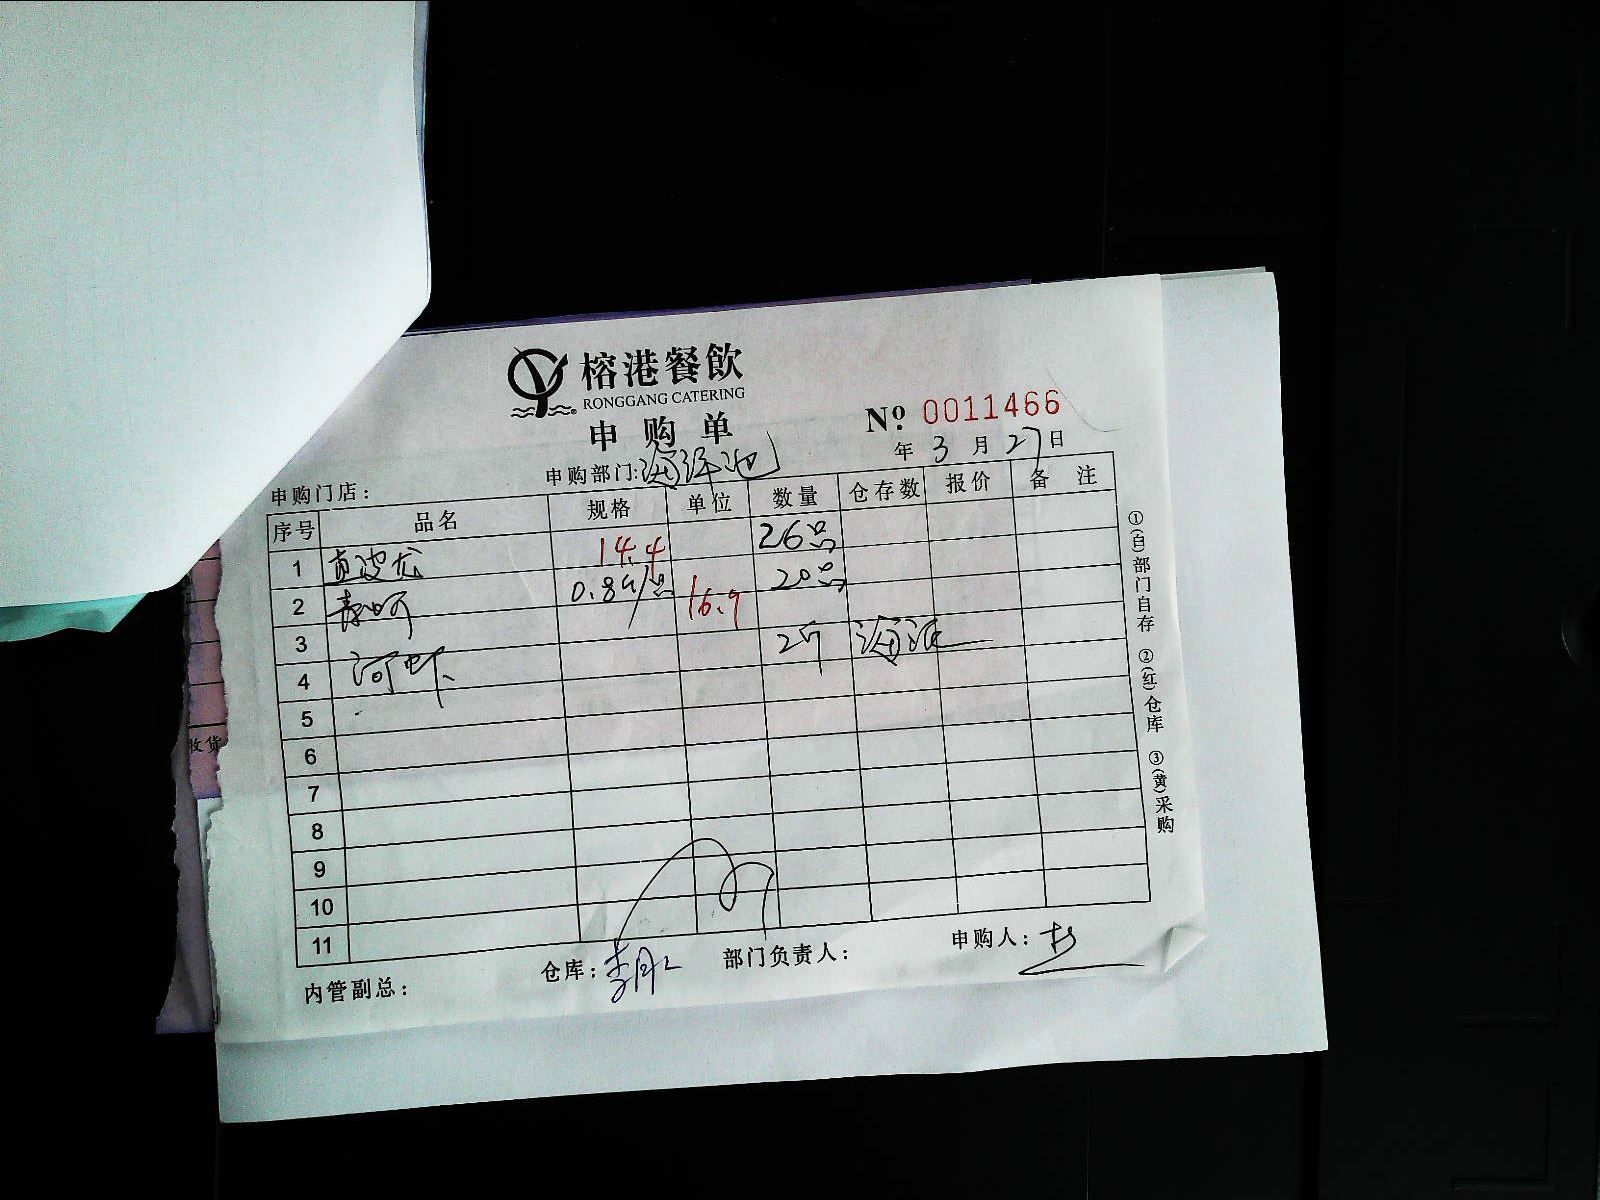 榕港餐飲
RONGGANG CATERING
申购单
№ 0011466
年 3 月 27 日
申购门店： 申购部门:海鲜池
序号 品名 规格 单位 数量 仓存数 报价 备注
1 14.4 26只
2 0.8斤/只 16.9 20只
3 2斤
4 河虾
5
6
7
8
9
10
11
内管副总： 仓库： 部门负责人： 申购人：
①(自)部门自存 ②(红)仓库 ③(黄)采购
收货